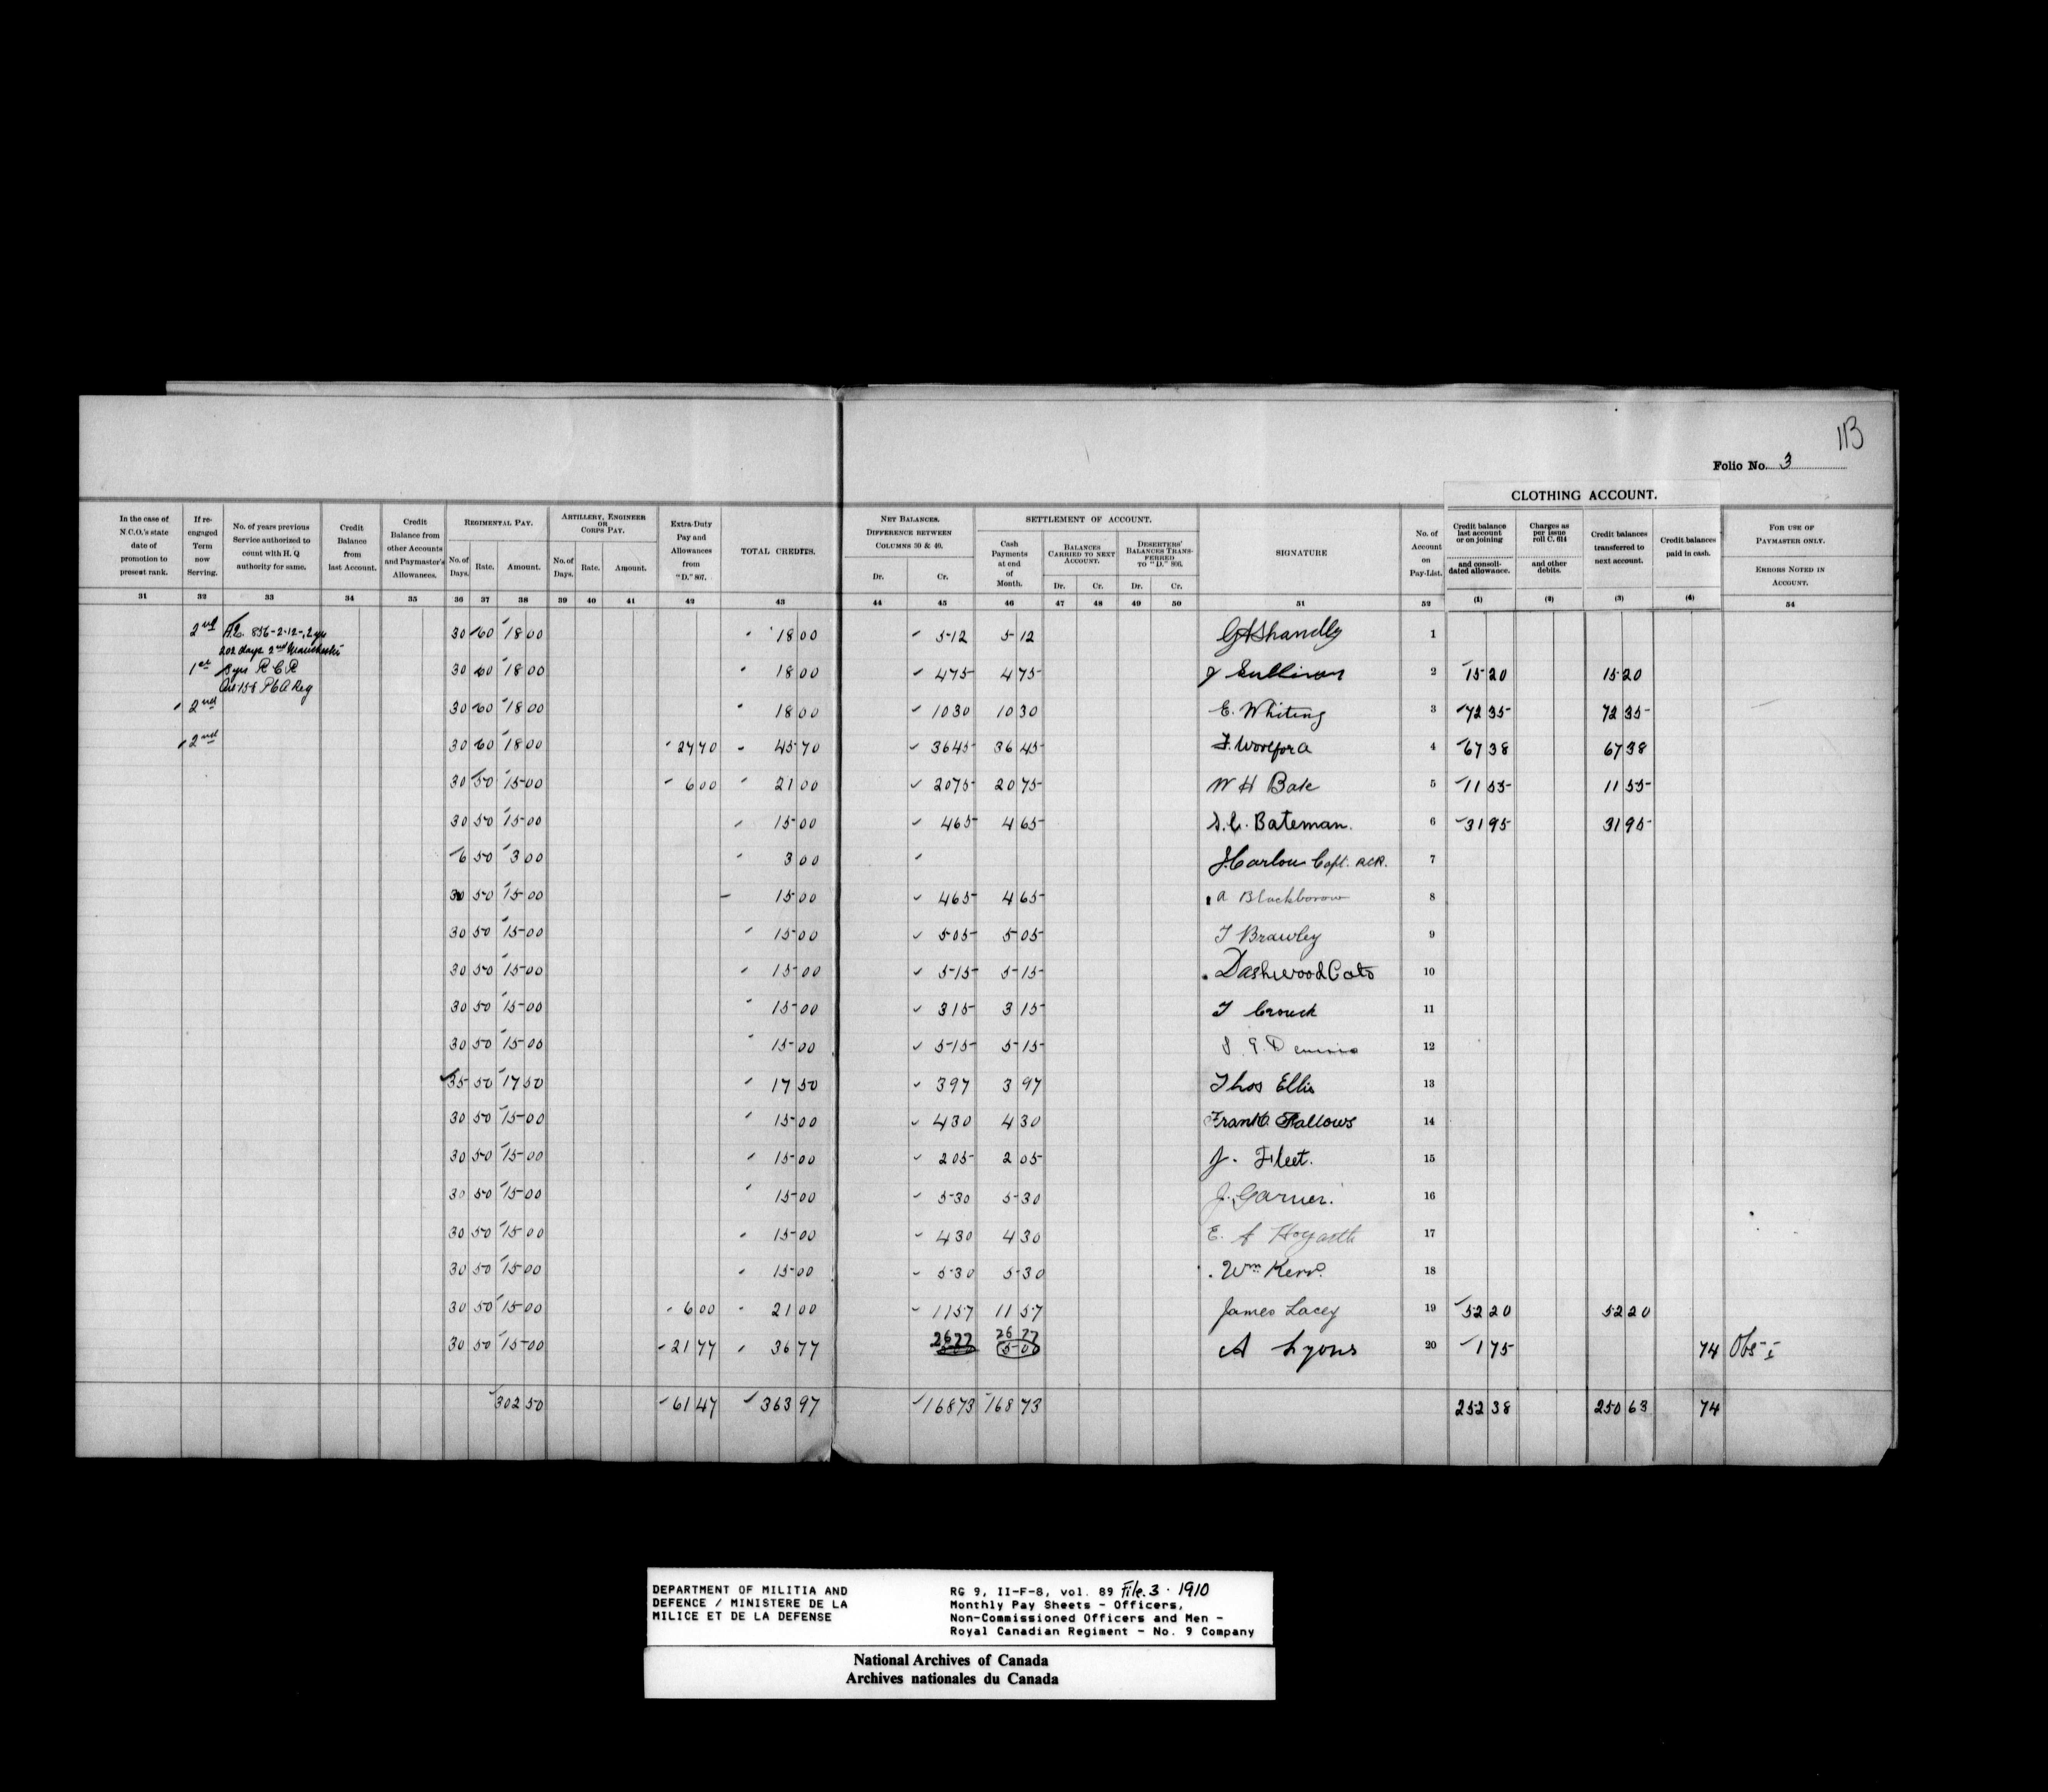 113
Folio No. 3
CLOTHING ACCOUNT.
In the case of N.C.O.'s state date of promotion to present rank.
If re-engaged Term now Serving.
No. of years previous Service authorized to count with H. Q authority for same.
Credit Balance from last Account.
Credit Balance from other Accounts and Paymaster's Allowances.
REGIMENTAL PAY.
No. of Days. Rate. Amount.
ARTILLERY, ENGINEER OR CORPS PAY.
No. of Days. Rate. Amount.
Extra-Duty Pay and Allowances from "D." 807.
TOTAL CREDITS.
NET BALANCES. DIFFERENCE BETWEEN COLUMNS 30 & 40.
Dr. Cr.
SETTLEMENT OF ACCOUNT.
Cash Payments at end of Month.
BALANCES CARRIED TO NEXT ACCOUNT.
Dr. Cr.
DESERTERS' BALANCES TRANSFERRED TO "D." 803.
Dr. Cr.
SIGNATURE
No. of Account on Pay-List.
Credit balance last account or on joining and consolidated allowance.
Charges as per issue roll C. 614 and other debits.
Credit balances transferred to next account.
Credit balances paid in cash.
FOR USE OF PAYMASTER ONLY.
ERRORS NOTED IN ACCOUNT.
31 32 33 34 35 36 37 38 39 40 41 42 43 44 45 46 47 48 49 50 51 52 (1) (2) (3) (4) 54
2nd 856-2-12-, 2 yrs 30 60 18 00 18 00 5 12 5 12 1
202 days 2nd Manchester
1st 3 yrs R C R 30 60 18 00 18 00 4 75 4 75 J Sullivan 2 15 20 15 20
158 P & A Reg
2nd 30 60 18 00 18 00 10 30 10 30 E. Whiting 3 72 35 72 35
2nd 30 60 18 00 27 70 45 70 36 45 36 45 F. Woolford 4 67 38 67 38
30 50 15 00 6 00 21 00 20 75 20 75 W H Bate 5 11 55 11 55
30 50 15 00 15 00 4 65 4 65 S. C. Bateman. 6 31 95 31 95
6 50 3 00 3 00 Capt. RCR. 7
30 50 15 00 15 00 4 65 4 65 A Blackborow 8
30 50 15 00 15 00 5 05 5 05 T Brawley 9
30 50 15 00 15 00 5 15 5 15 Dashwood Cato 10
30 50 15 00 15 00 3 15 3 15 T Crouch 11
30 50 15 00 15 00 5 15 5 15 12
35 50 17 50 17 50 3 97 3 97 Thos Ellis 13
30 50 15 00 15 00 4 30 4 30 Frank Fallows 14
30 50 15 00 15 00 2 05 2 05 J. Fleet. 15
30 50 15 00 15 00 5 30 5 30 J. Garner. 16
30 50 15 00 15 00 4 30 4 30 E. A Hogarth 17
30 50 15 00 15 00 5 30 5 30 Wm Kerr. 18
30 50 15 00 6 00 21 00 11 57 11 57 James Lacey 19 52 20 52 20
30 50 15 00 21 77 36 77 26 77 26 77 A Lyons 20 1 75 74 Obs-I
302 50 61 47 363 97 168 73 168 73 252 38 250 63 74
DEPARTMENT OF MILITIA AND
DEFENCE / MINISTERE DE LA
MILICE ET DE LA DEFENSE
RG 9, II-F-8, vol. 89 File.3 · 1910
Monthly Pay Sheets - Officers,
Non-Commissioned Officers and Men -
Royal Canadian Regiment - No. 9 Company
National Archives of Canada
Archives nationales du Canada